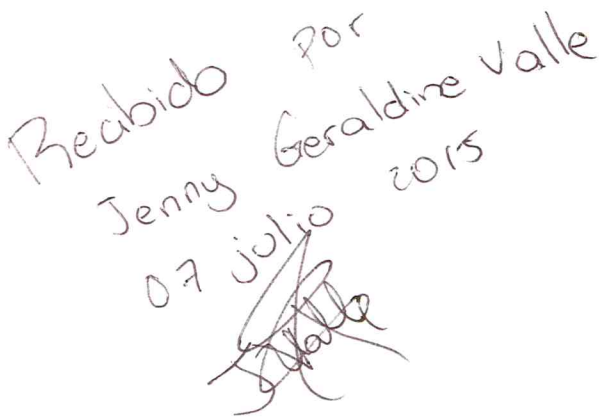 Recibido por
Jenny Geraldine Valle
07 julio 2015